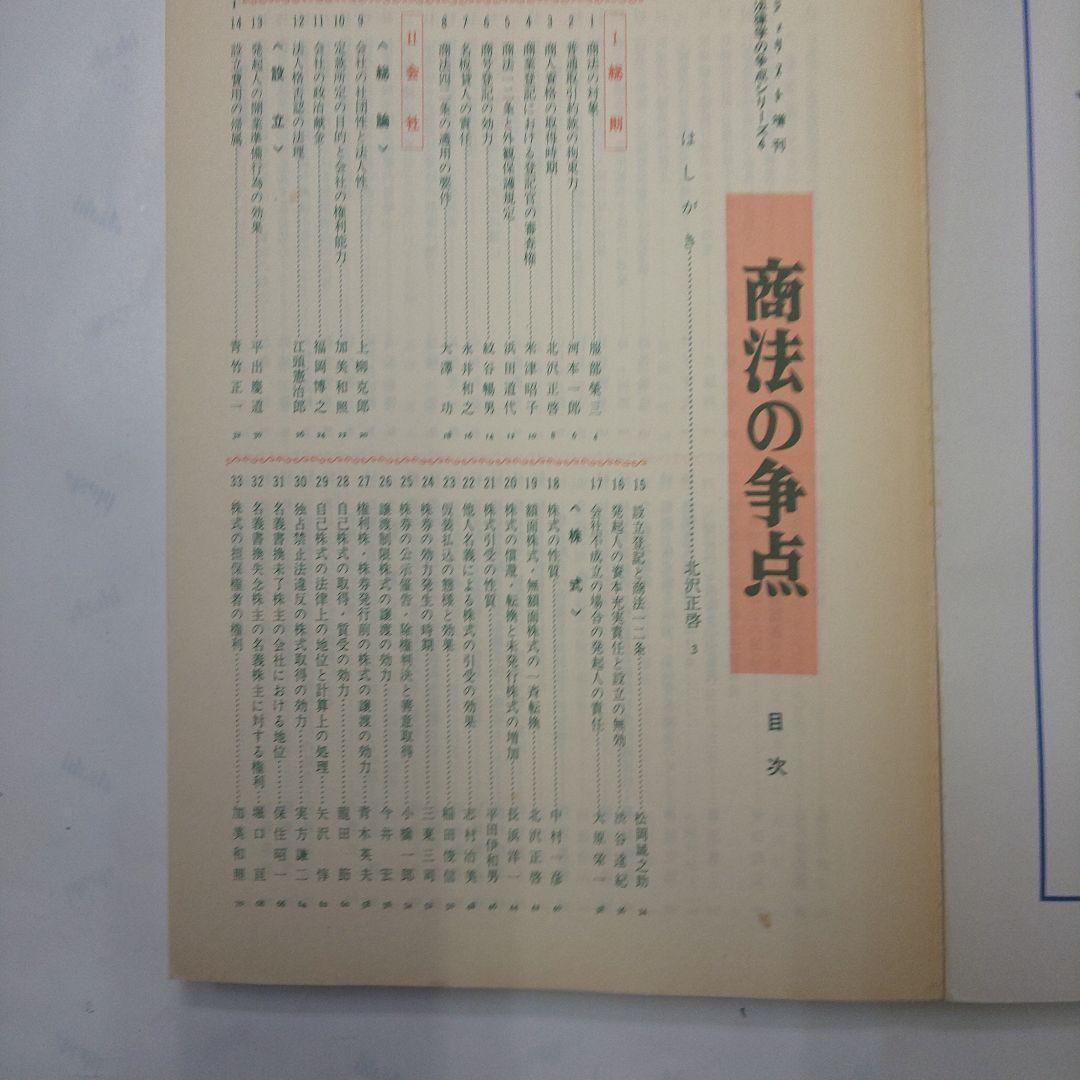 増刊
商法の争点
目次
はしがき……北沢正啓 3
I 総則
1 商法の対象……服部榮三
2 普通取引約款の拘束力……河本一郎
3 商人資格の取得時期……北沢正啓
4 商業登記における登記官の審査権……米津昭子
5 商法一二条と外観保護規定……浜田道代
6 商号登記の効力……紋谷暢男
7 名板貸人の責任……永井和之
8 商法四二条の適用の要件……大澤功
II 会社
〈総論〉
9 会社の社団性と法人性……上柳克郎
10 定款所定の目的と会社の権利能力……加美和照
11 会社の政治献金……福岡博之
12 法人格否認の法理……江頭憲治郎
〈設立〉
13 発起人の開業準備行為の効果……平出慶道
14 設立費用の帰属……青竹正一
15 設立登記と商法一二条……松岡誠之助
16 発起人の資本充実責任と設立の無効……渋谷達紀
17 会社不成立の場合の発起人の責任……大原栄一
〈株式〉
18 株式の性質……中村一彦
19 額面株式・無額面株式の一斉転換……北沢正啓
20 株式の償還・転換と未発行株式の増加……長浜洋一
21 株式引受の性質……平田伊和男
22 他人名義による株式の引受の効果……志村治美
23 仮装払込の態様と効果……稲田俊信
24 株券の効力発生の時期……三東三司
25 株券の公示催告・除権判決と善意取得……小橋一郎
26 譲渡制限株式の譲渡の効力……今井宏
27 権利株・株券発行前の株式の譲渡の効力……青木英夫
28 自己株式の取得・質受の効力……龍田節
29 自己株式の法律上の地位と計算上の処理……矢沢惇
30 独占禁止法違反の株式取得の効力……実方謙二
31 名義書換未了株主の会社における地位……保住昭一
32 名義書換失念株主の名義株主に対する権利……堀口亘
33 株式の担保権者の権利……加美和照